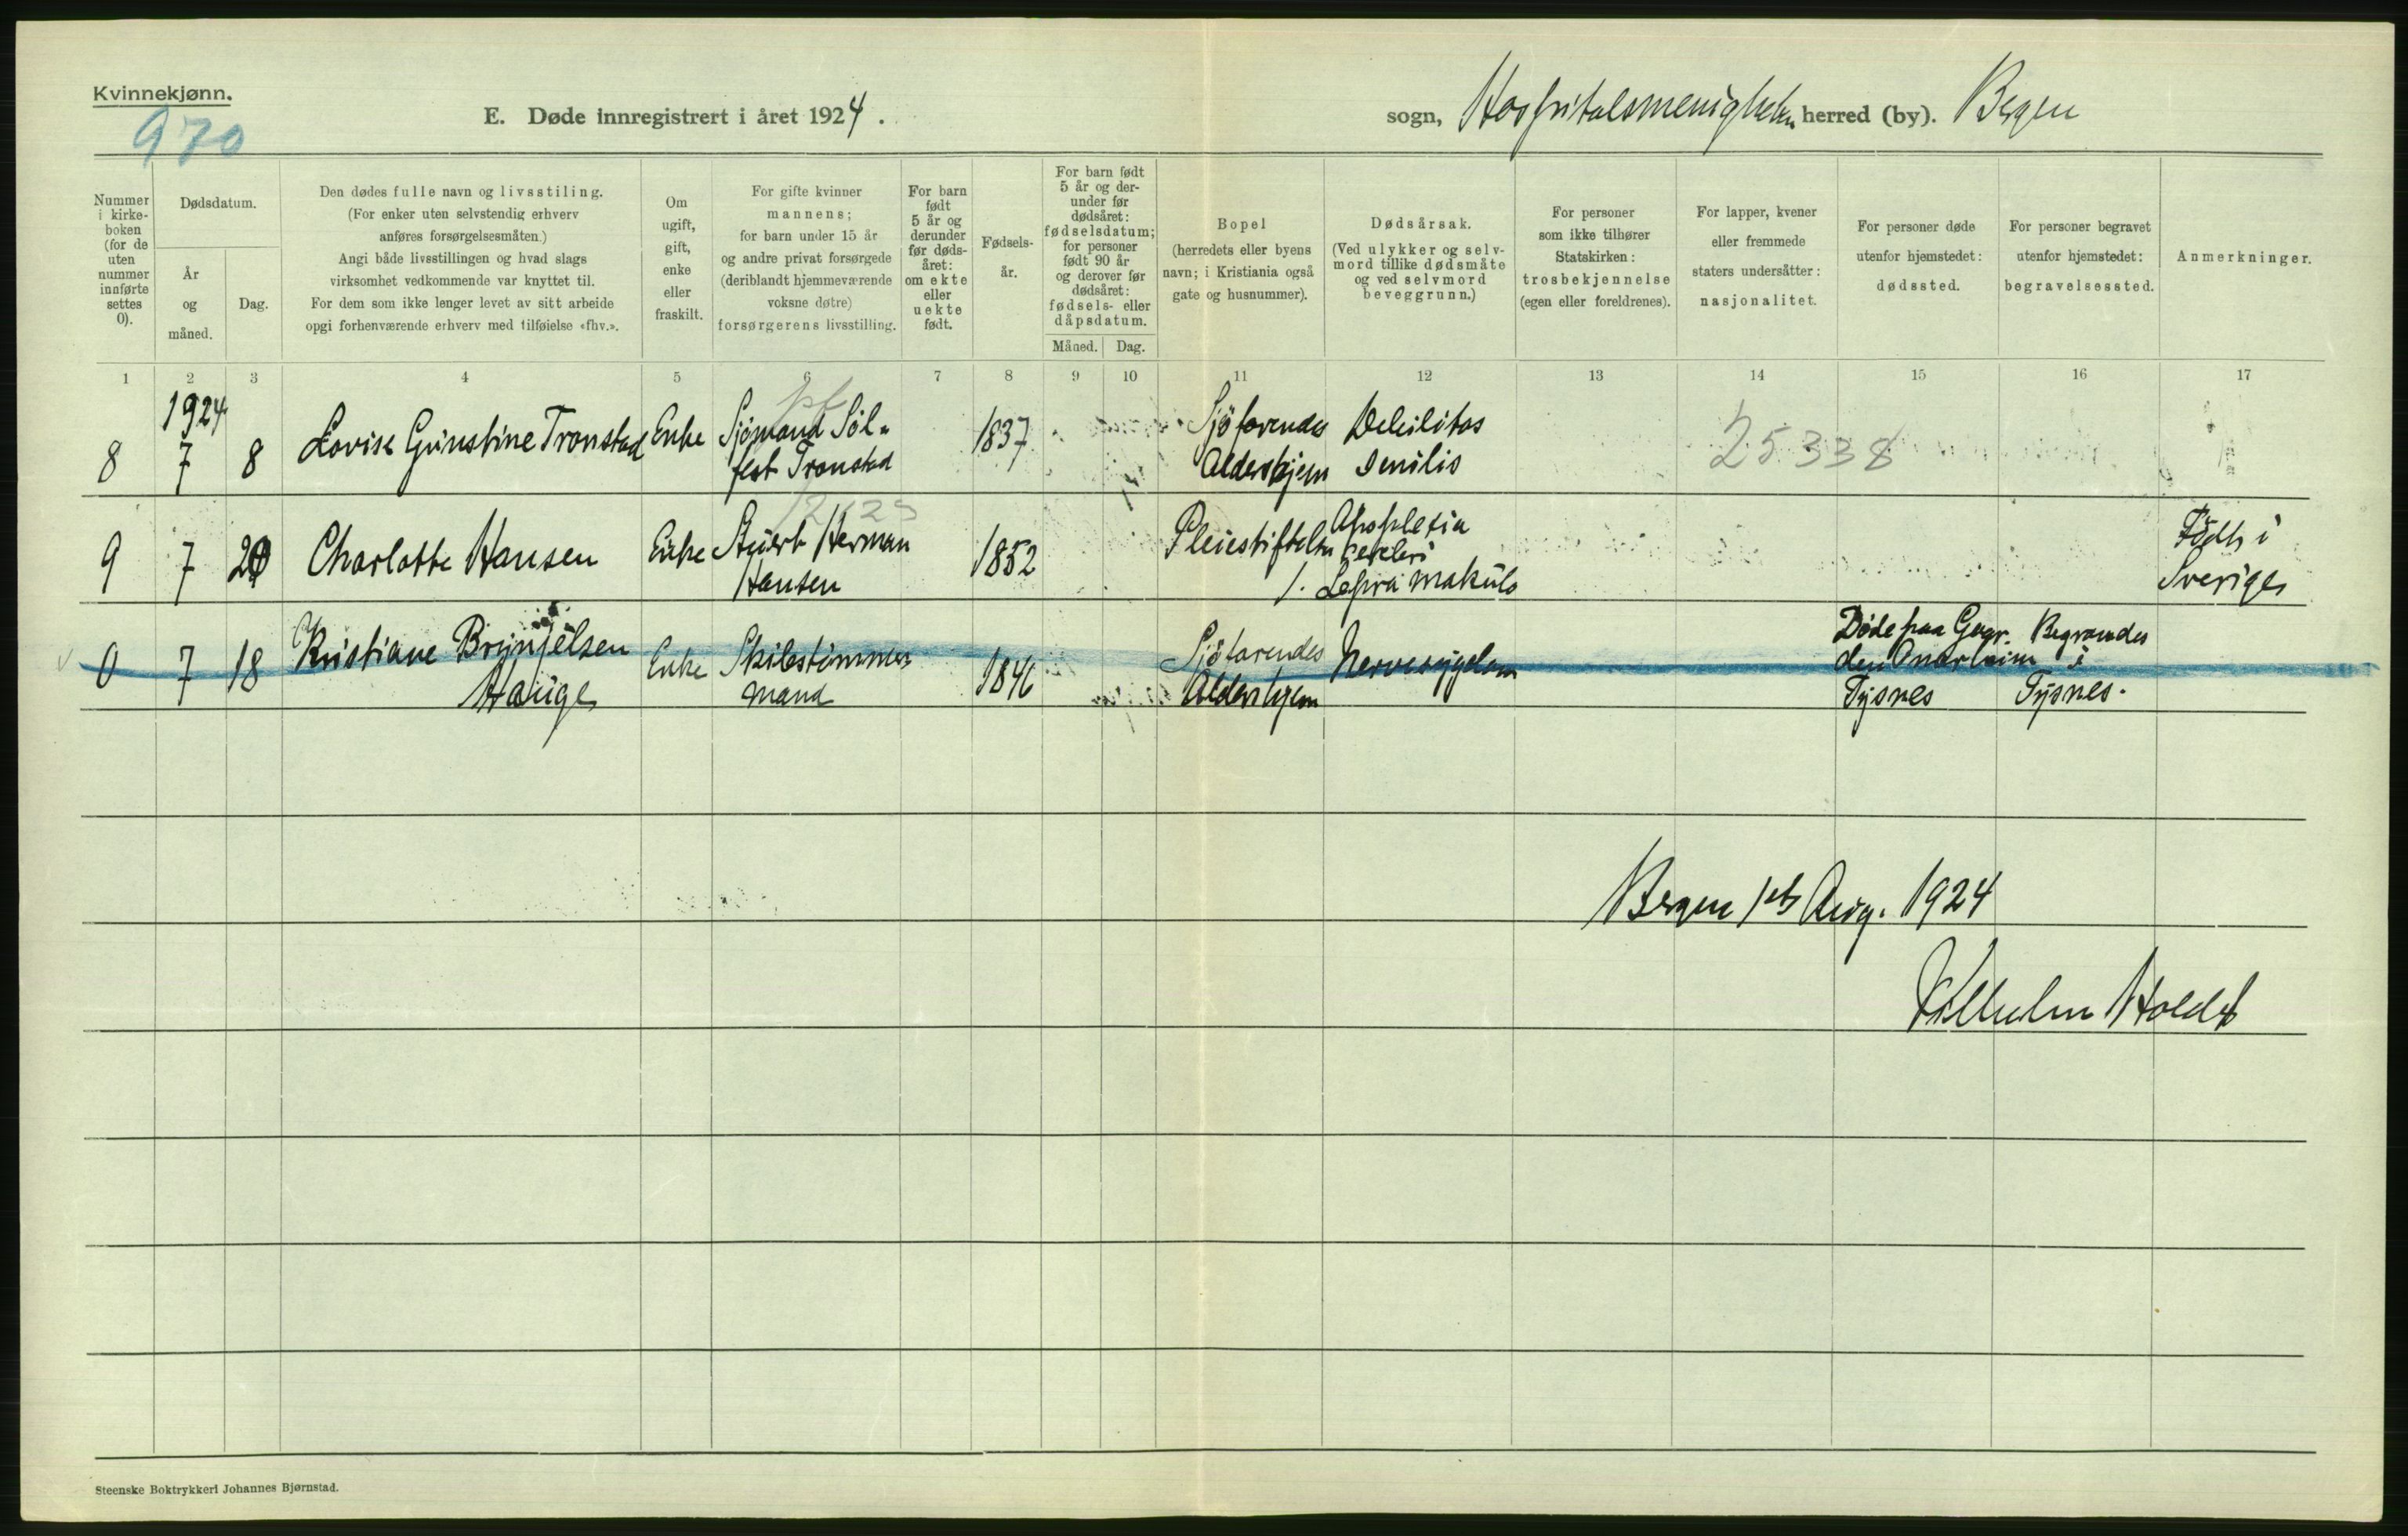 Kvinnekjønn.
970
E. Døde innregistrert i året 1924.
sogn, Hospitalsmenigheten herred (by). Bergen
Nummer i kirke-boken (for de uten nummer innførte settes 0).
Dødsdatum.
År og måned.
Dag.
Den dødes fulle navn og livsstiling.
(For enker uten selvstendig erhverv
anføres forsørgelsesmåten.)
Angi både livsstillingen og hvad slags
virksomhet vedkommende var knyttet til.
For dem som ikke lenger levet av sitt arbeide
opgi forhenværende erhverv med tilføielse «fhv.».
Om
ugift,
gift,
enke
eller
fraskilt.
For gifte kvinner
mannens;
for barn under 15 år
og andre privat forsørgede
(deriblandt hjemmeværende
voksne døtre)
forsørgerens livsstilling.
For barn
født
5 år og
derunder
før døds-
året:
om ekte
eller
uekte
født.
Fødsels-
år.
For barn født
5 år og der-
under før
dødsåret:
fødselsdatum;
for personer
født 90 år
og derover før
dødsåret:
fødsels- eller
dåpsdatum.
Måned.
Dag.
Bopel
(herredets eller byens
navn; i Kristiania også
gate og husnummer).
Dødsårsak.
(Ved ulykker og selv-
mord tillike dødsmåte
og ved selvmord
beveggrunn.)
For personer
som ikke tilhører
Statskirken:
trosbekjennelse
(egen eller foreldrenes).
For lapper, kvener
eller fremmede
staters undersåtter:
nasjonalitet.
For personer døde
utenfor hjemstedet:
dødssted.
For personer begravet
utenfor hjemstedet:
begravelsessted.
Anmerkninger.
1 2 3 4 5 6 7 8 9 10 11 12 13 14 15 16 17
1924
8 7 8 Lovise Gunstine Tronstad Enke Sjömand Söl-
fest Tronstad 1837 Sjöfarendes
Aldershjem Debilitas
senilis 25338
9 7 20 Charlotte Hansen Enke Stuert Herman
Hansen 1852 Pleiestiftelsen Apoplexia
cerebri
1. Lepra makulo Född i
Sverige
0 7 18 Kristiane Brynjelsen
Hauge Enke Skibstömmer
mand 1846 Sjöfarendes
Aldershjem Nervesygdom Döde paa Gaar-
den Onarheim
Tysnes Begravedes
i
Tysnes.
Bergen 1st Aug. 1924
Vilhelm Holdt
Steenske Boktrykkeri Johannes Bjørnstad.